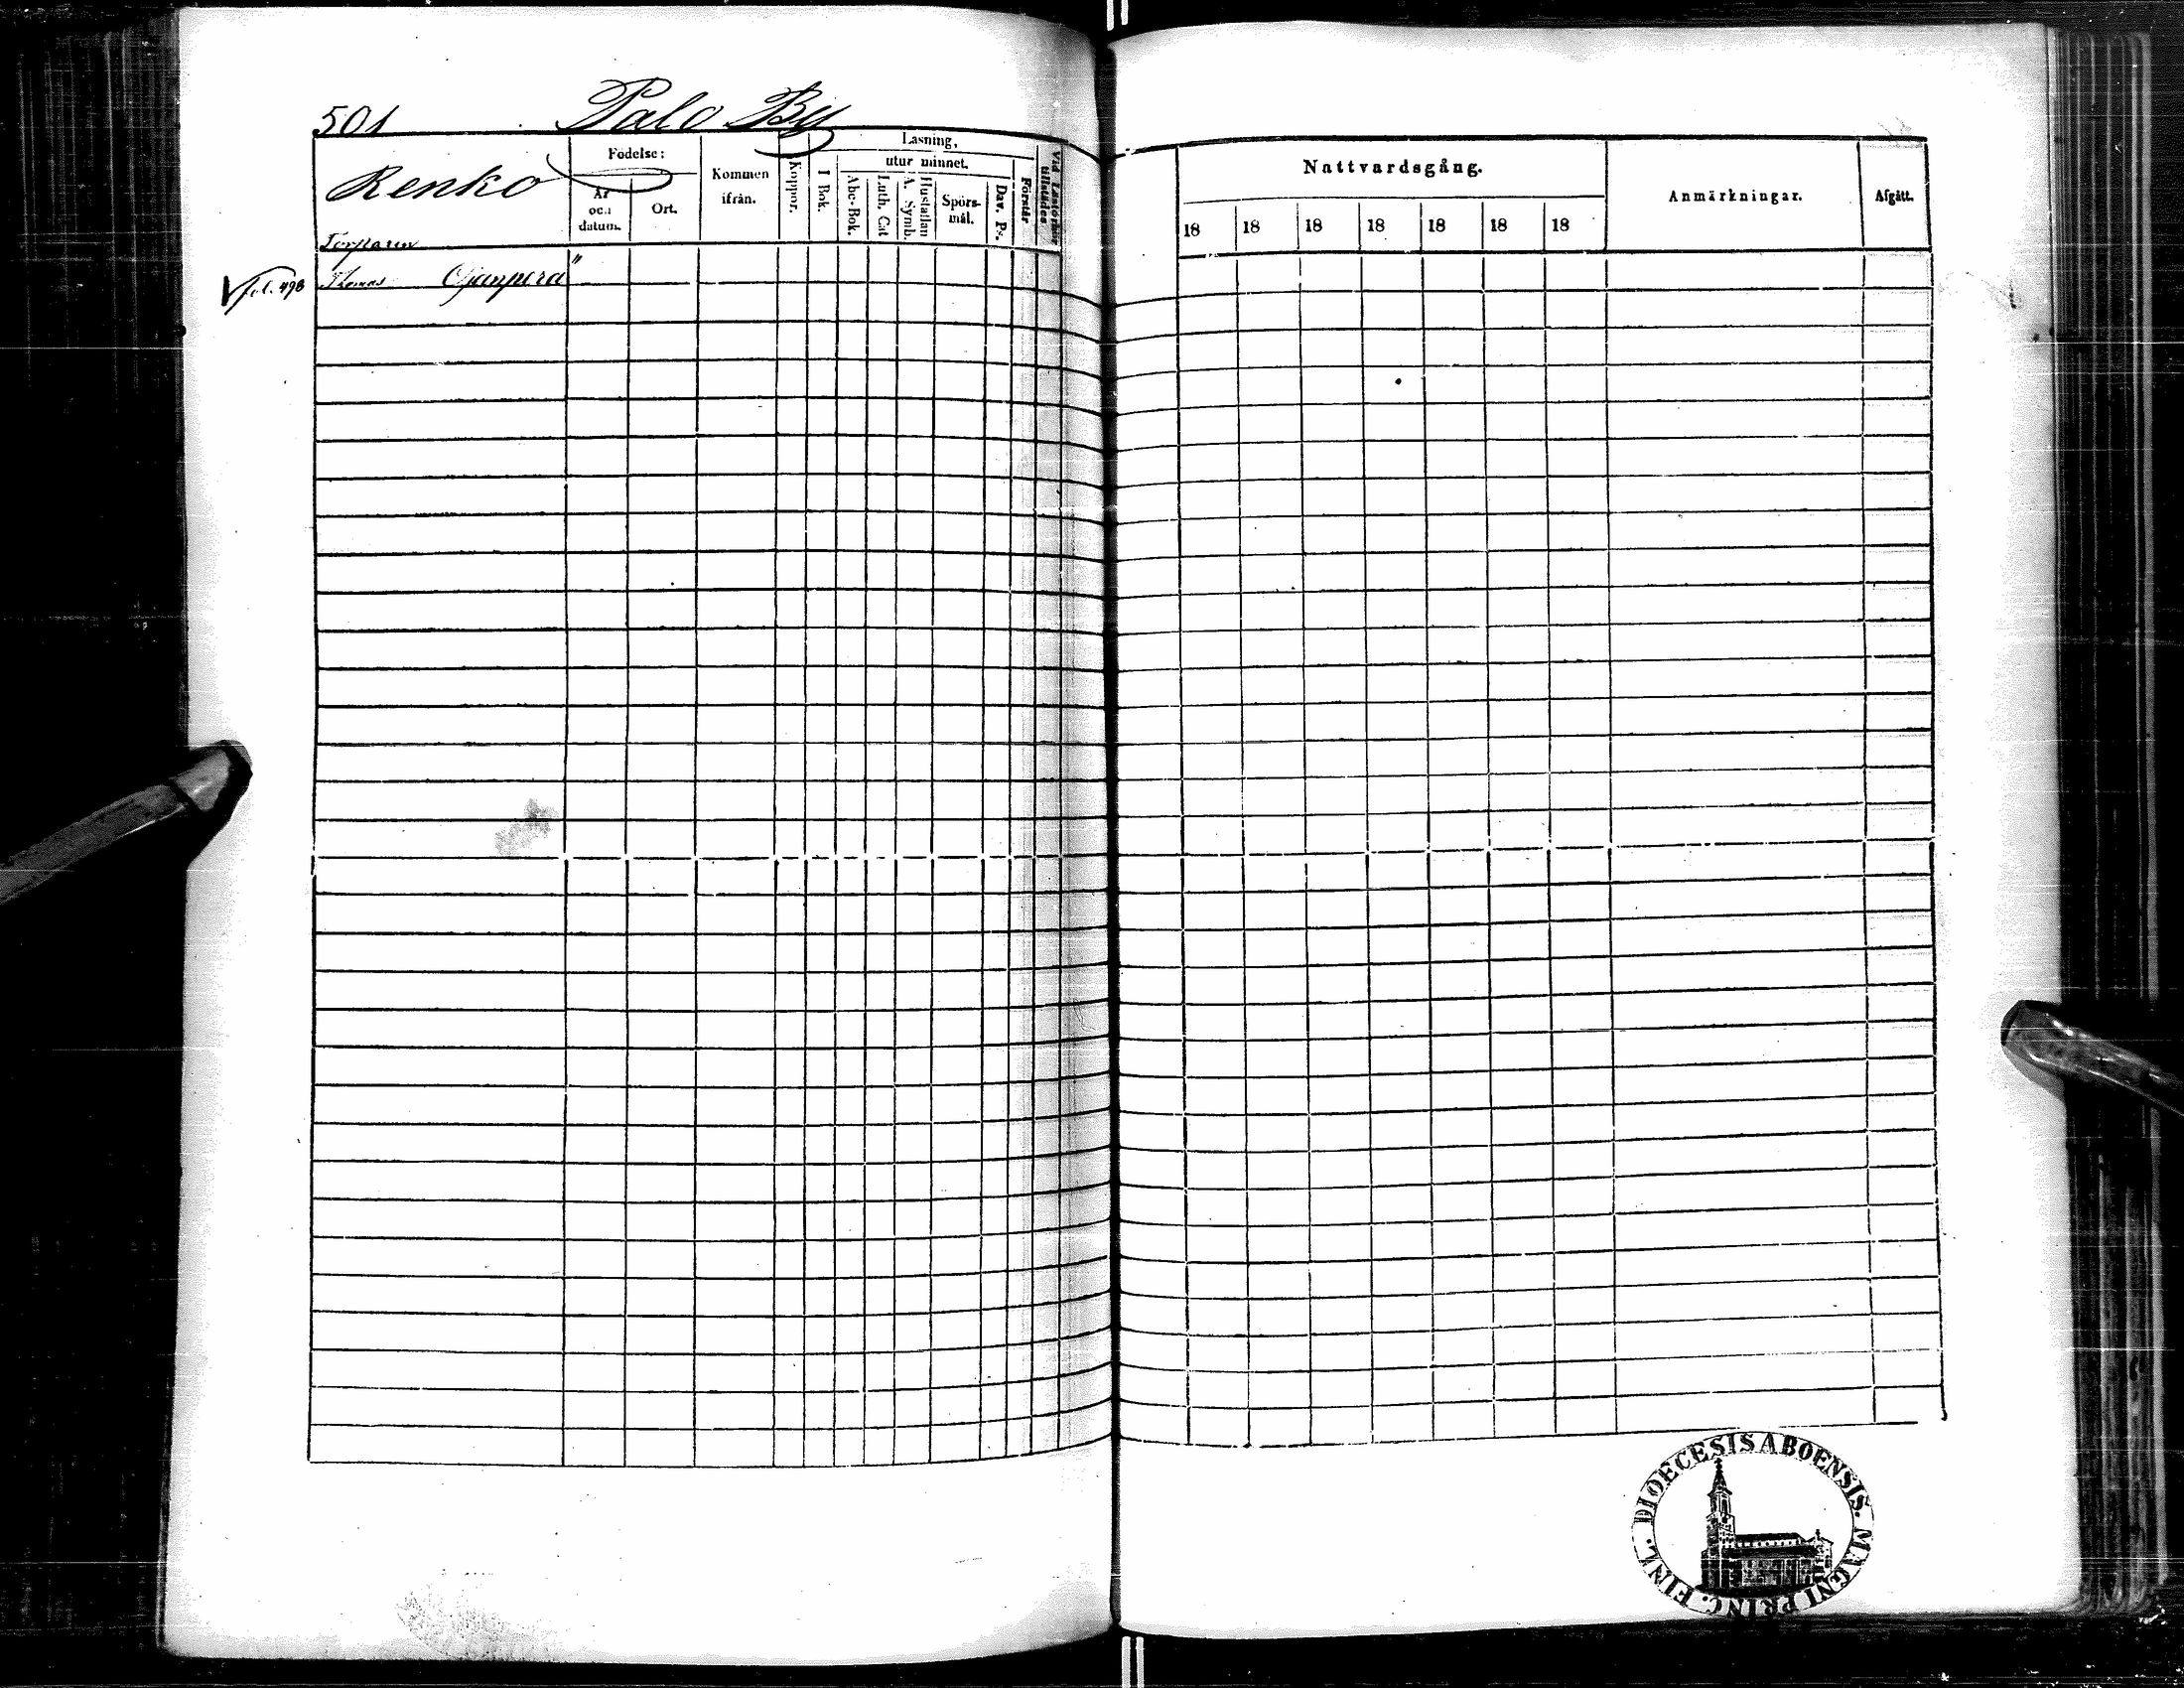 501 Palo By
Renko
Torparen
V fol. 498 Thomas Ojanperä
Födelse:
År och datum.
Ort.
Kommen ifrån.
Koppor.
Läsning,
utur minnet.
I Bok.
Abc-Bok.
Luth. Cat
Hustaflan A. Symb.
Spörs-mål.
Dav. Ps.
Förstår
Vid Läsförhör tillstädes
Nattvardsgång.
18 18 18 18 18 18 18
Anmärkningar.
Afgått.
DIOECESIS ABOENSIS. MAGNI PRINC. FINL.